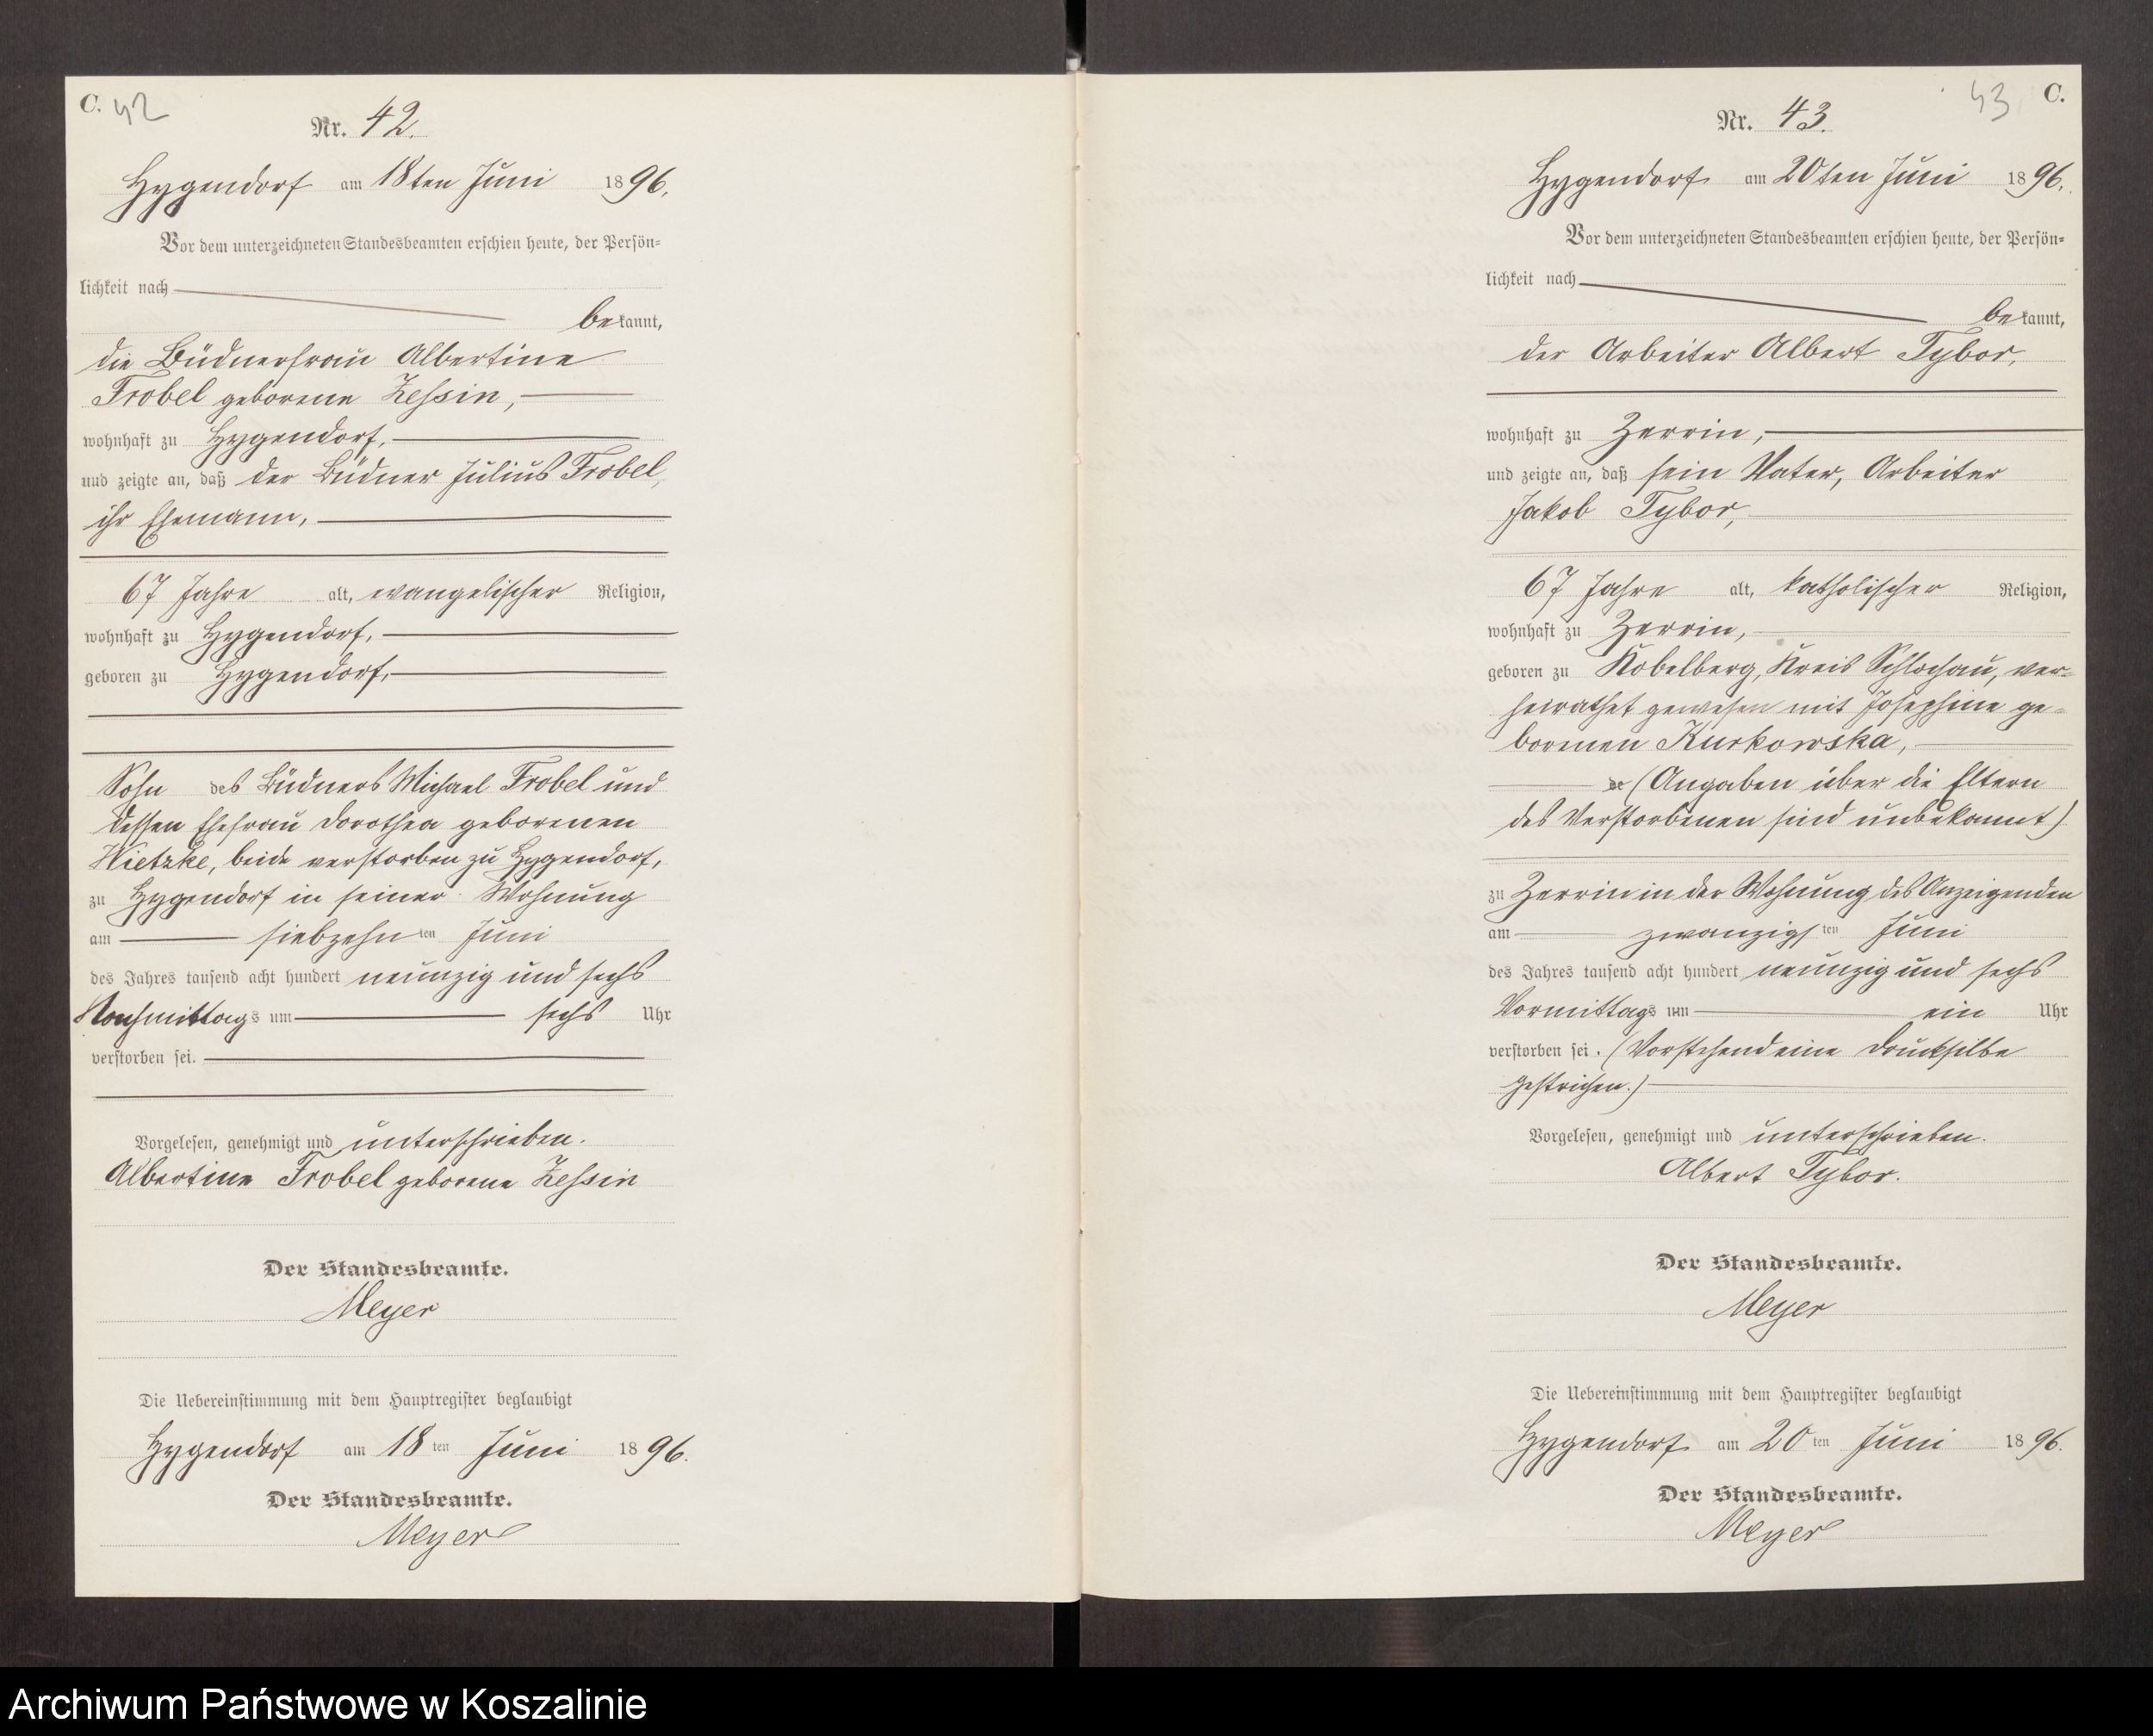 C. 42
Nr. 42.
Hygendorf am 18ten Juni 1896.
Vor dem unterzeichneten Standesbeamten erschien heute, der Persön=
lichkeit nach
bekannt,
die Büdnerfrau Albertine
Trobel geborene Zessin,
wohnhaft zu Hygendorf,
und zeigte an, daß der Büdner Julius Trobel,
ihr Ehemann,
67 Jahre alt, evangelischer Religion,
wohnhaft zu Hygendorf,
geboren zu Hygendorf,
Sohn des Büdners Michael Trobel und
dessen Ehefrau Dorothea geborenen
Wietzke, beide verstorben zu Hygendorf,
zu Hygendorf in seiner Wohnung
am siebzehnten Juni
des Jahres tausend acht hundert neunzig und sechs
Nachmittags um sechs Uhr
verstorben sei.
Vorgelesen, genehmigt und unterschrieben.
Albertine Trobel geborene Zessin
Der Standesbeamte.
Meyer
Die Uebereinstimmung mit dem Hauptregister beglaubigt
Hygendorf am 18ten Juni 1896.
Der Standesbeamte.
Meyer
43 C.
Nr. 43.
Hygendorf am 20ten Juni 1896.
Vor dem unterzeichneten Standesbeamten erschien heute, der Persön=
lichkeit nach
bekannt,
der Arbeiter Albert Tybor,
wohnhaft zu Zerrin,
und zeigte an, daß sein Vater, Arbeiter
Jakob Tybor,
67 Jahre alt, katholischer Religion,
wohnhaft zu Zerrin,
geboren zu Kobelberg, Kreis Schlochau, ver=
heirathet gewesen mit Josephine ge=
borenen Kurkowska,
de (Angaben über die Eltern
des Verstorbenen sind unbekannt)
zu Zerrin in der Wohnung des Anzeigenden
am zwanzigsten Juni
des Jahres tausend acht hundert neunzig und sechs
Vormittags um ein Uhr
verstorben sei. (Vorstehend eine Drucksilbe
gestrichen.)
Vorgelesen, genehmigt und unterschrieben.
Albert Tybor.
Der Standesbeamte.
Meyer
Die Uebereinstimmung mit dem Hauptregister beglaubigt
Hygendorf am 20ten Juni 1896.
Der Standesbeamte.
Meyer
Archiwum Państwowe w Koszalinie